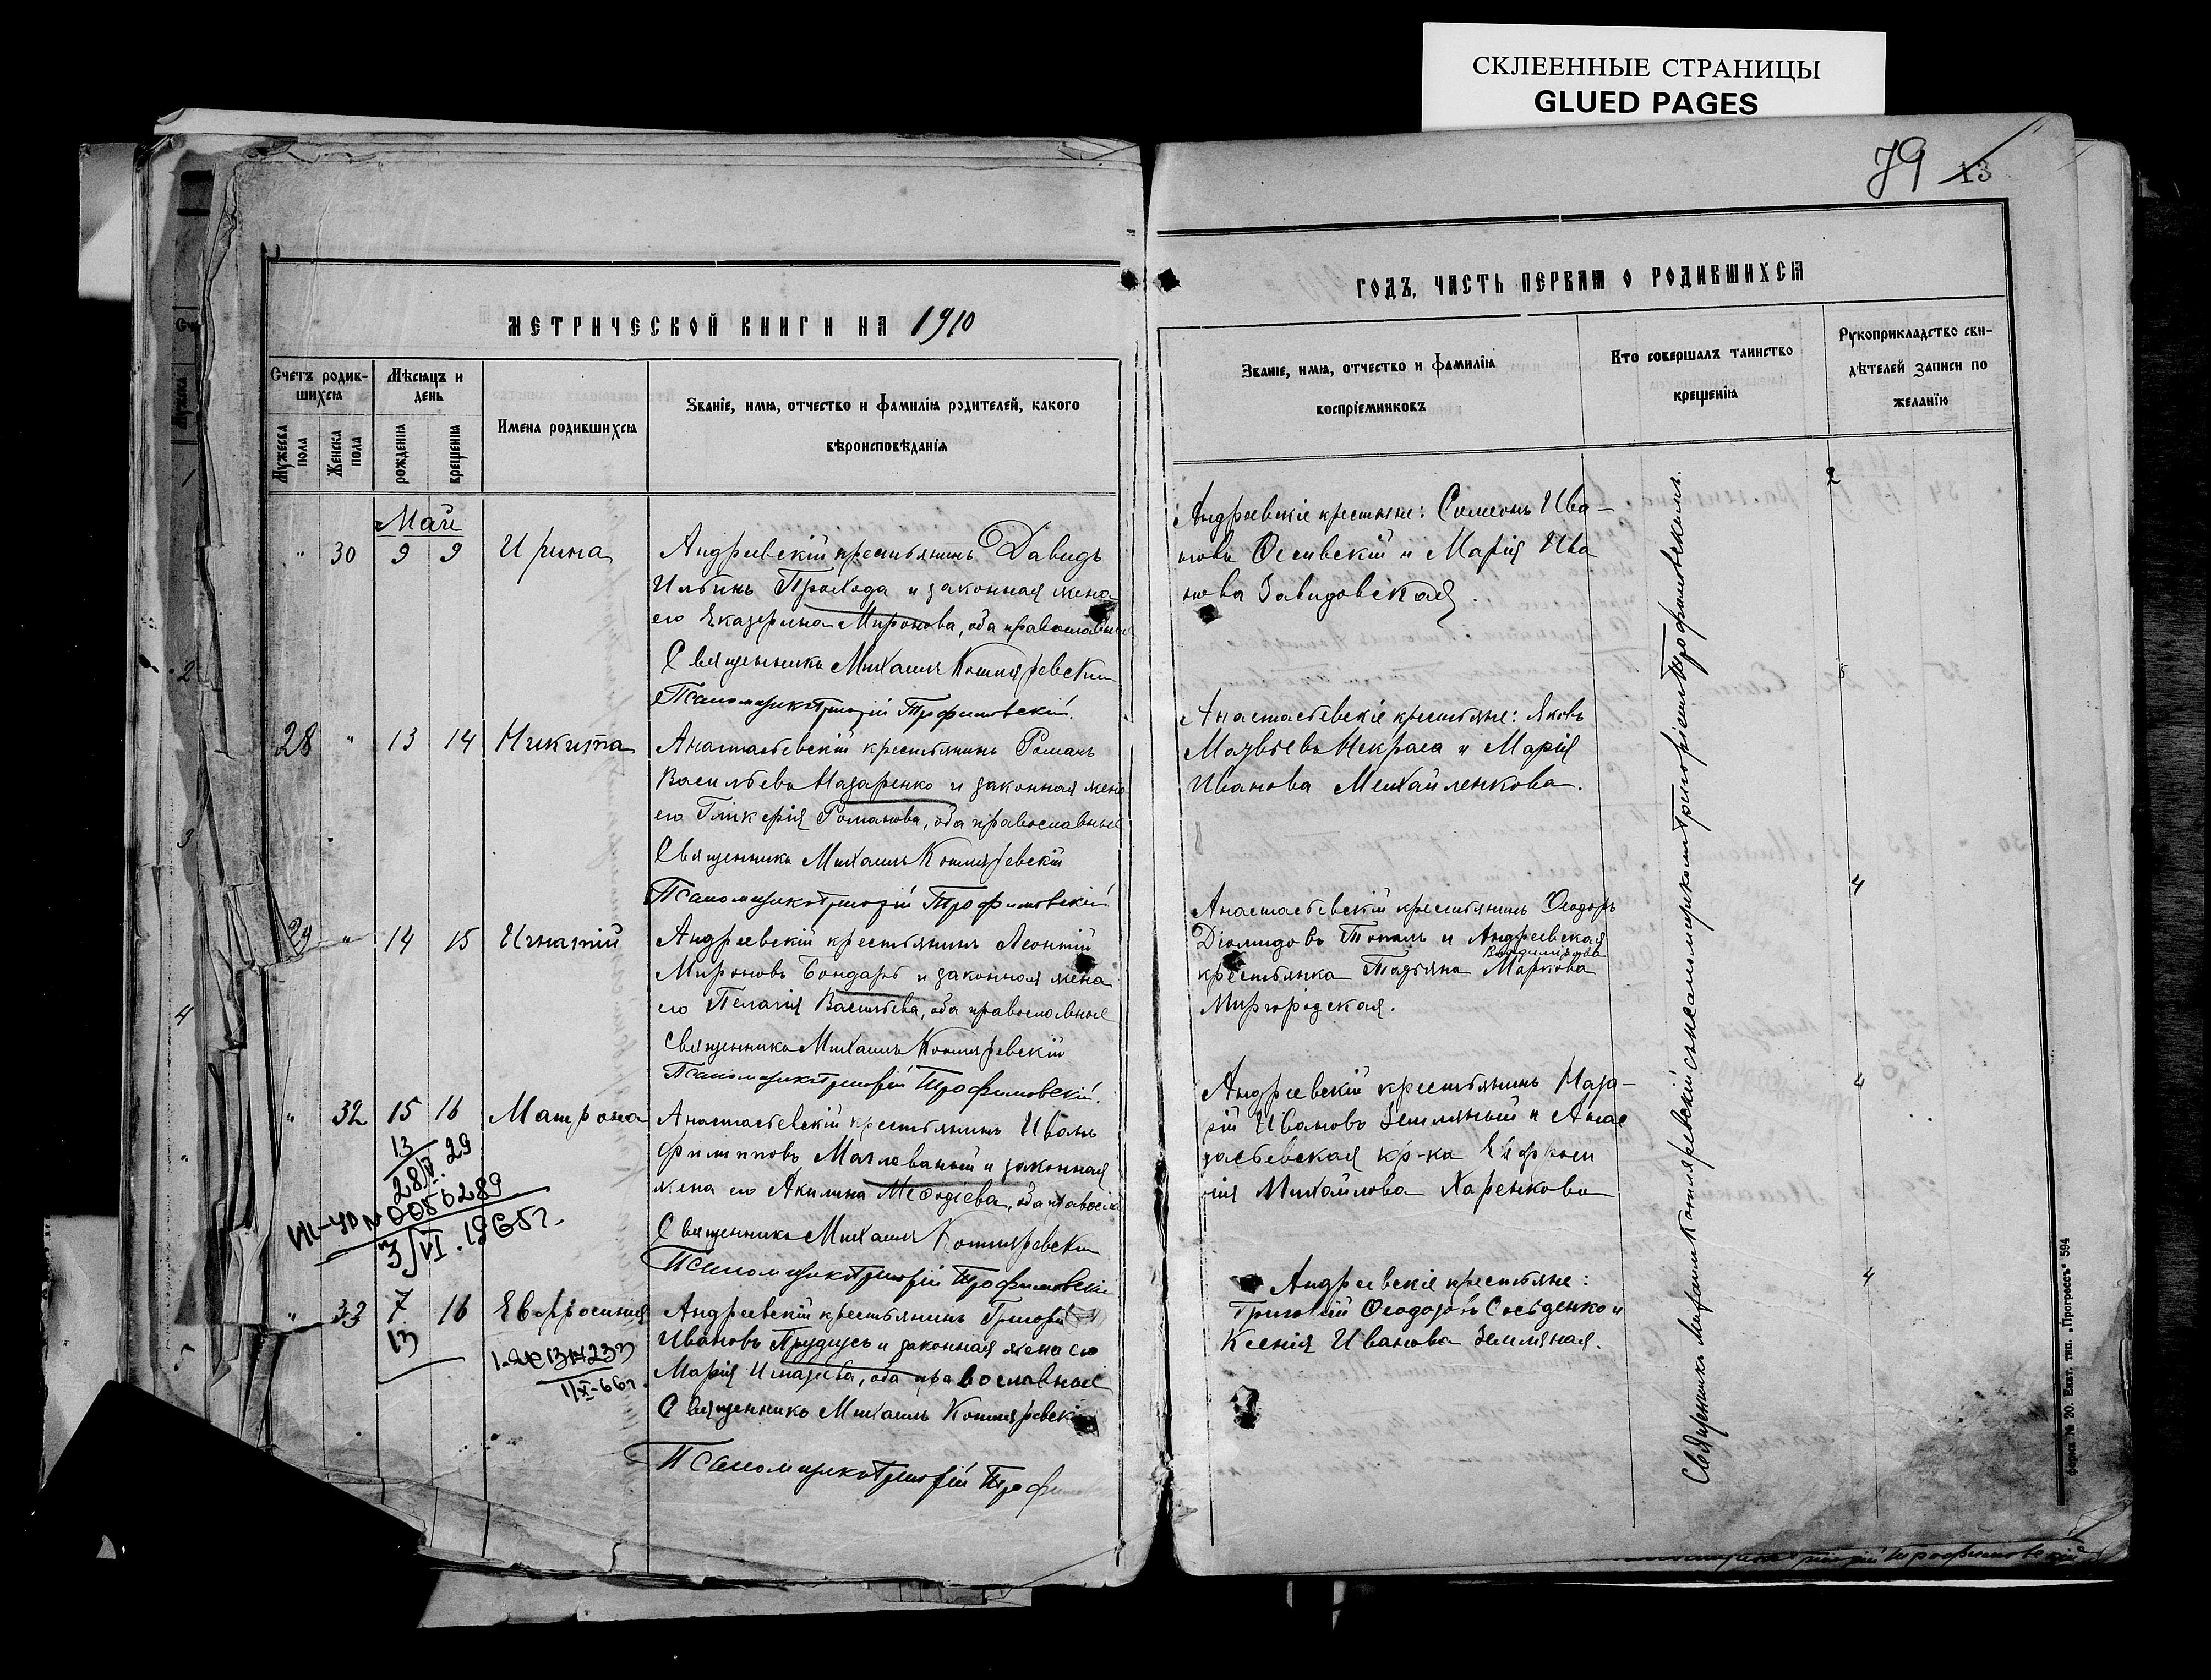 СКЛЕЕННЫЕ СТРАНИЦЫ
GLUED PAGES
79 13
МЕТРИЧЕСКОЙ КНИГИ НА 1910
Счетъ родив-
шихся
Мѣсяцъ и
день
Мужеска
пола
Женска
пола
рожденія
крещенія
Имена родившихся
Званіе, имя, отчество и фамилія родителей, какого
вѣроисповѣданія
Май
" 30 9 9 Ирина
Андреевскій крестьянинъ Давидъ
Ильинъ Прохода и законная жена
его Екатерина Миронова, оба православные
Священникъ Михаилъ Котляревскій
Псаломщикъ Григорій Трофимовскій.
28 " 13 14 Никита
Анастасьевскій крестьянинъ Романъ
Васильевъ Назаренко и законная жена
его Гликерія Романова, оба православные
Священникъ Михаилъ Котляревскій
Псаломщикъ Григорій Трофимовскій
29 " 14 15 Игнатій
Андреевскій крестьянинъ Леонтій
Мироновъ Бондарь и законная жена
его Пелагія Васильева, оба православные
Священникъ Михаилъ Котляревскій
Псаломщикъ Григорій Трофимовскій.
" 32 15 16 Матрона
13
28/V.29
0050289
3/VI.1965г.
Анастасьевскій крестьянинъ Иванъ
Филипповъ и законная
жена его Акилина Меѳодіева, оба правосл
Священникъ Михаилъ Котляревскій
Псаломщикъ Григорій Трофимовскій
" 33 7 16 Евфросинія
13
Андреевскій крестьянинъ Григорій
Ивановъ Прудиусъ и законная жена его
Марія Игнатьева, оба православные
Священникъ Михаилъ Котляревскій
Псаломщикъ Григорій
ГОДЪ, ЧАСТЬ ПЕРВАЯ О РОДИВШИХСЯ
Званіе, имя, отчество и фамилія
воспріемниковъ
Кто совершалъ таинство
крещенія
Рукоприкладство сви-
дѣтелей записи по
желанію
Андреевскіе крестьяне: Симеонъ Ива-
новъ и Марія Ива
нова Завидовская.
Анастасьевскіе крестьяне: Яковъ
Матвѣевъ Некраса и Марія
Иванова Михайленкова.
Анастасьевскій крестьянинъ Ѳеодоръ
Діомидовъ Тополь и Андреевская
Владимірова
крестьянка Татьяна Маркова
Миргородская.
Андреевскій крестьянинъ Наза-
рій Ивановъ Земляный и Анас
тасьевская кр-ка Евфроси
нія Михайлова Харенкова
Андреевскіе крестьяне:
Григорій Ѳеодоровъ и
Ксенія Иванова Земляная.
Священникъ Михаилъ Котляревскій съ псаломщикомъ Григоріемъ Трофимовскимъ.
4
4
4
Форма № 20. Екат. тип. „Прогрессъ" 594